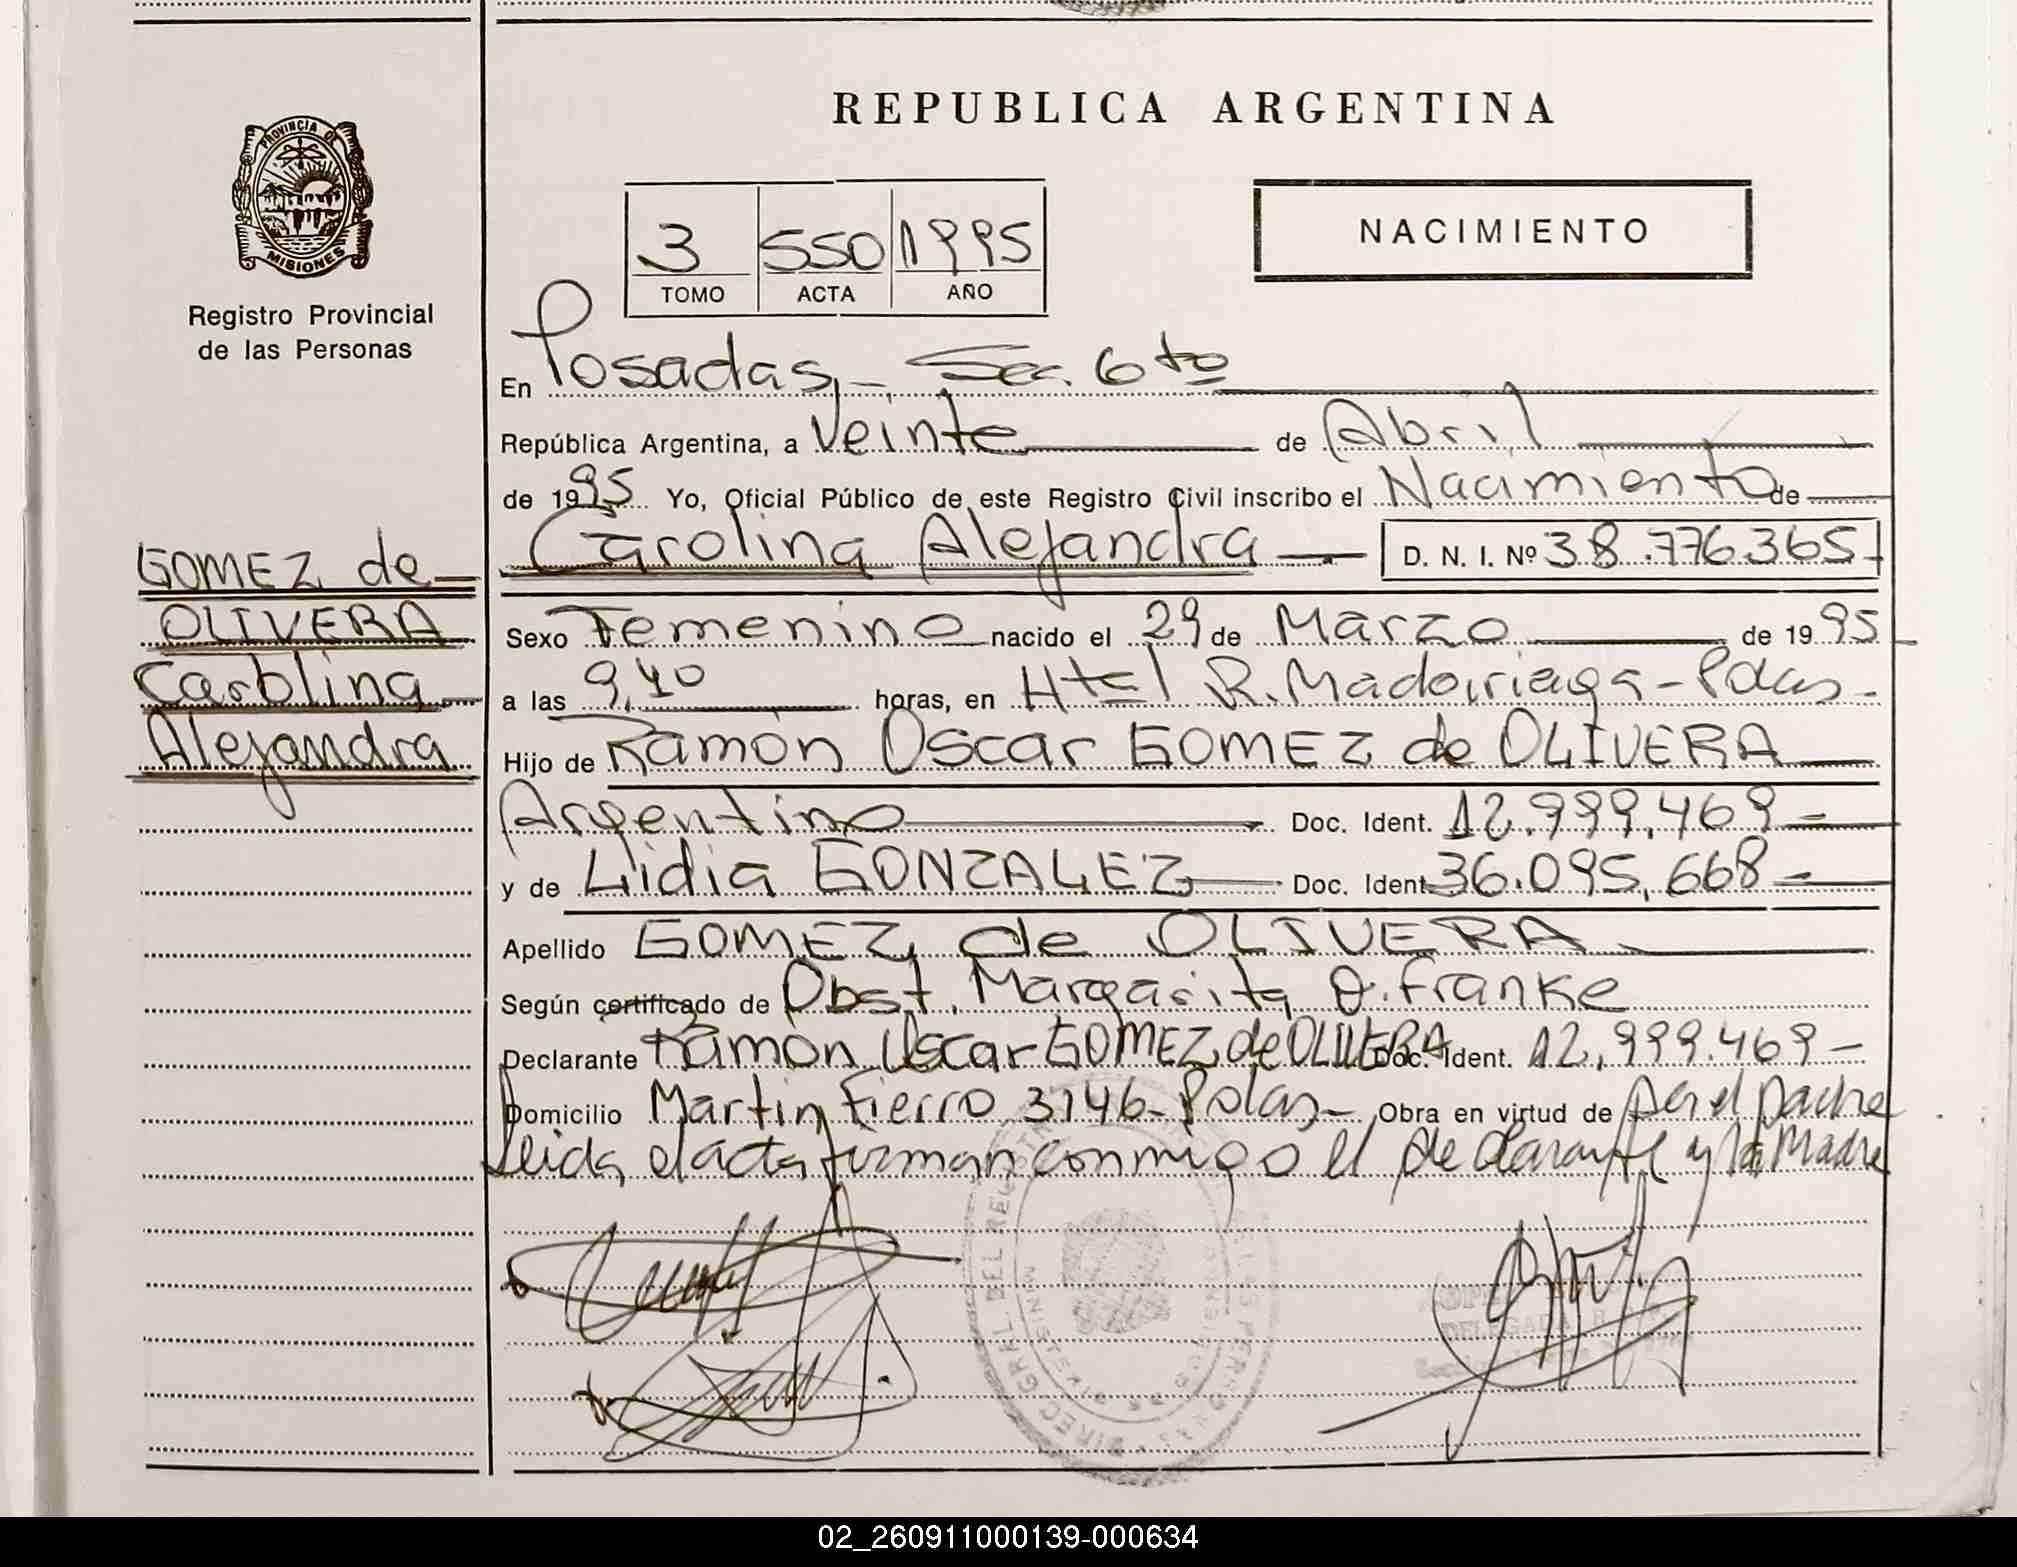 REPUBLICA ARGENTINA
PROVINCIA DE
MISIONES
Registro Provincial
de las Personas
3 550 1995
TOMO ACTA AÑO
NACIMIENTO
En Posadas,- Sec. 6to
República Argentina, a Veinte de Abril
de 1995 Yo, Oficial Público de este Registro Civil inscribo el Nacimiento de
Carolina Alejandra D. N. I. Nº 38.776.365-
GOMEZ de
OLIVERA
Carolina
Alejandra
Sexo Femenino nacido el 29 de Marzo de 1995
a las 9,40 horas, en Htal R. Madariaga - Pdas -
Hijo de Ramón Oscar GOMEZ de OLIVERA
Argentino Doc. Ident. 12.999.469 -
y de Lidia GONZALEZ Doc. Ident 36.095.668 -
Apellido GOMEZ de OLIVERA
Según certificado de Obst. Margarita O. Franke
Declarante Ramón Oscar GOMEZ de OLIVERA Doc. Ident. 12.999.469 -
Domicilio Martin Fierro 3146 - Pdas - Obra en virtud de Ser el padre
Leida el acta firman conmigo el declarante y la Madre
DELEGADA
02_260911000139-000634